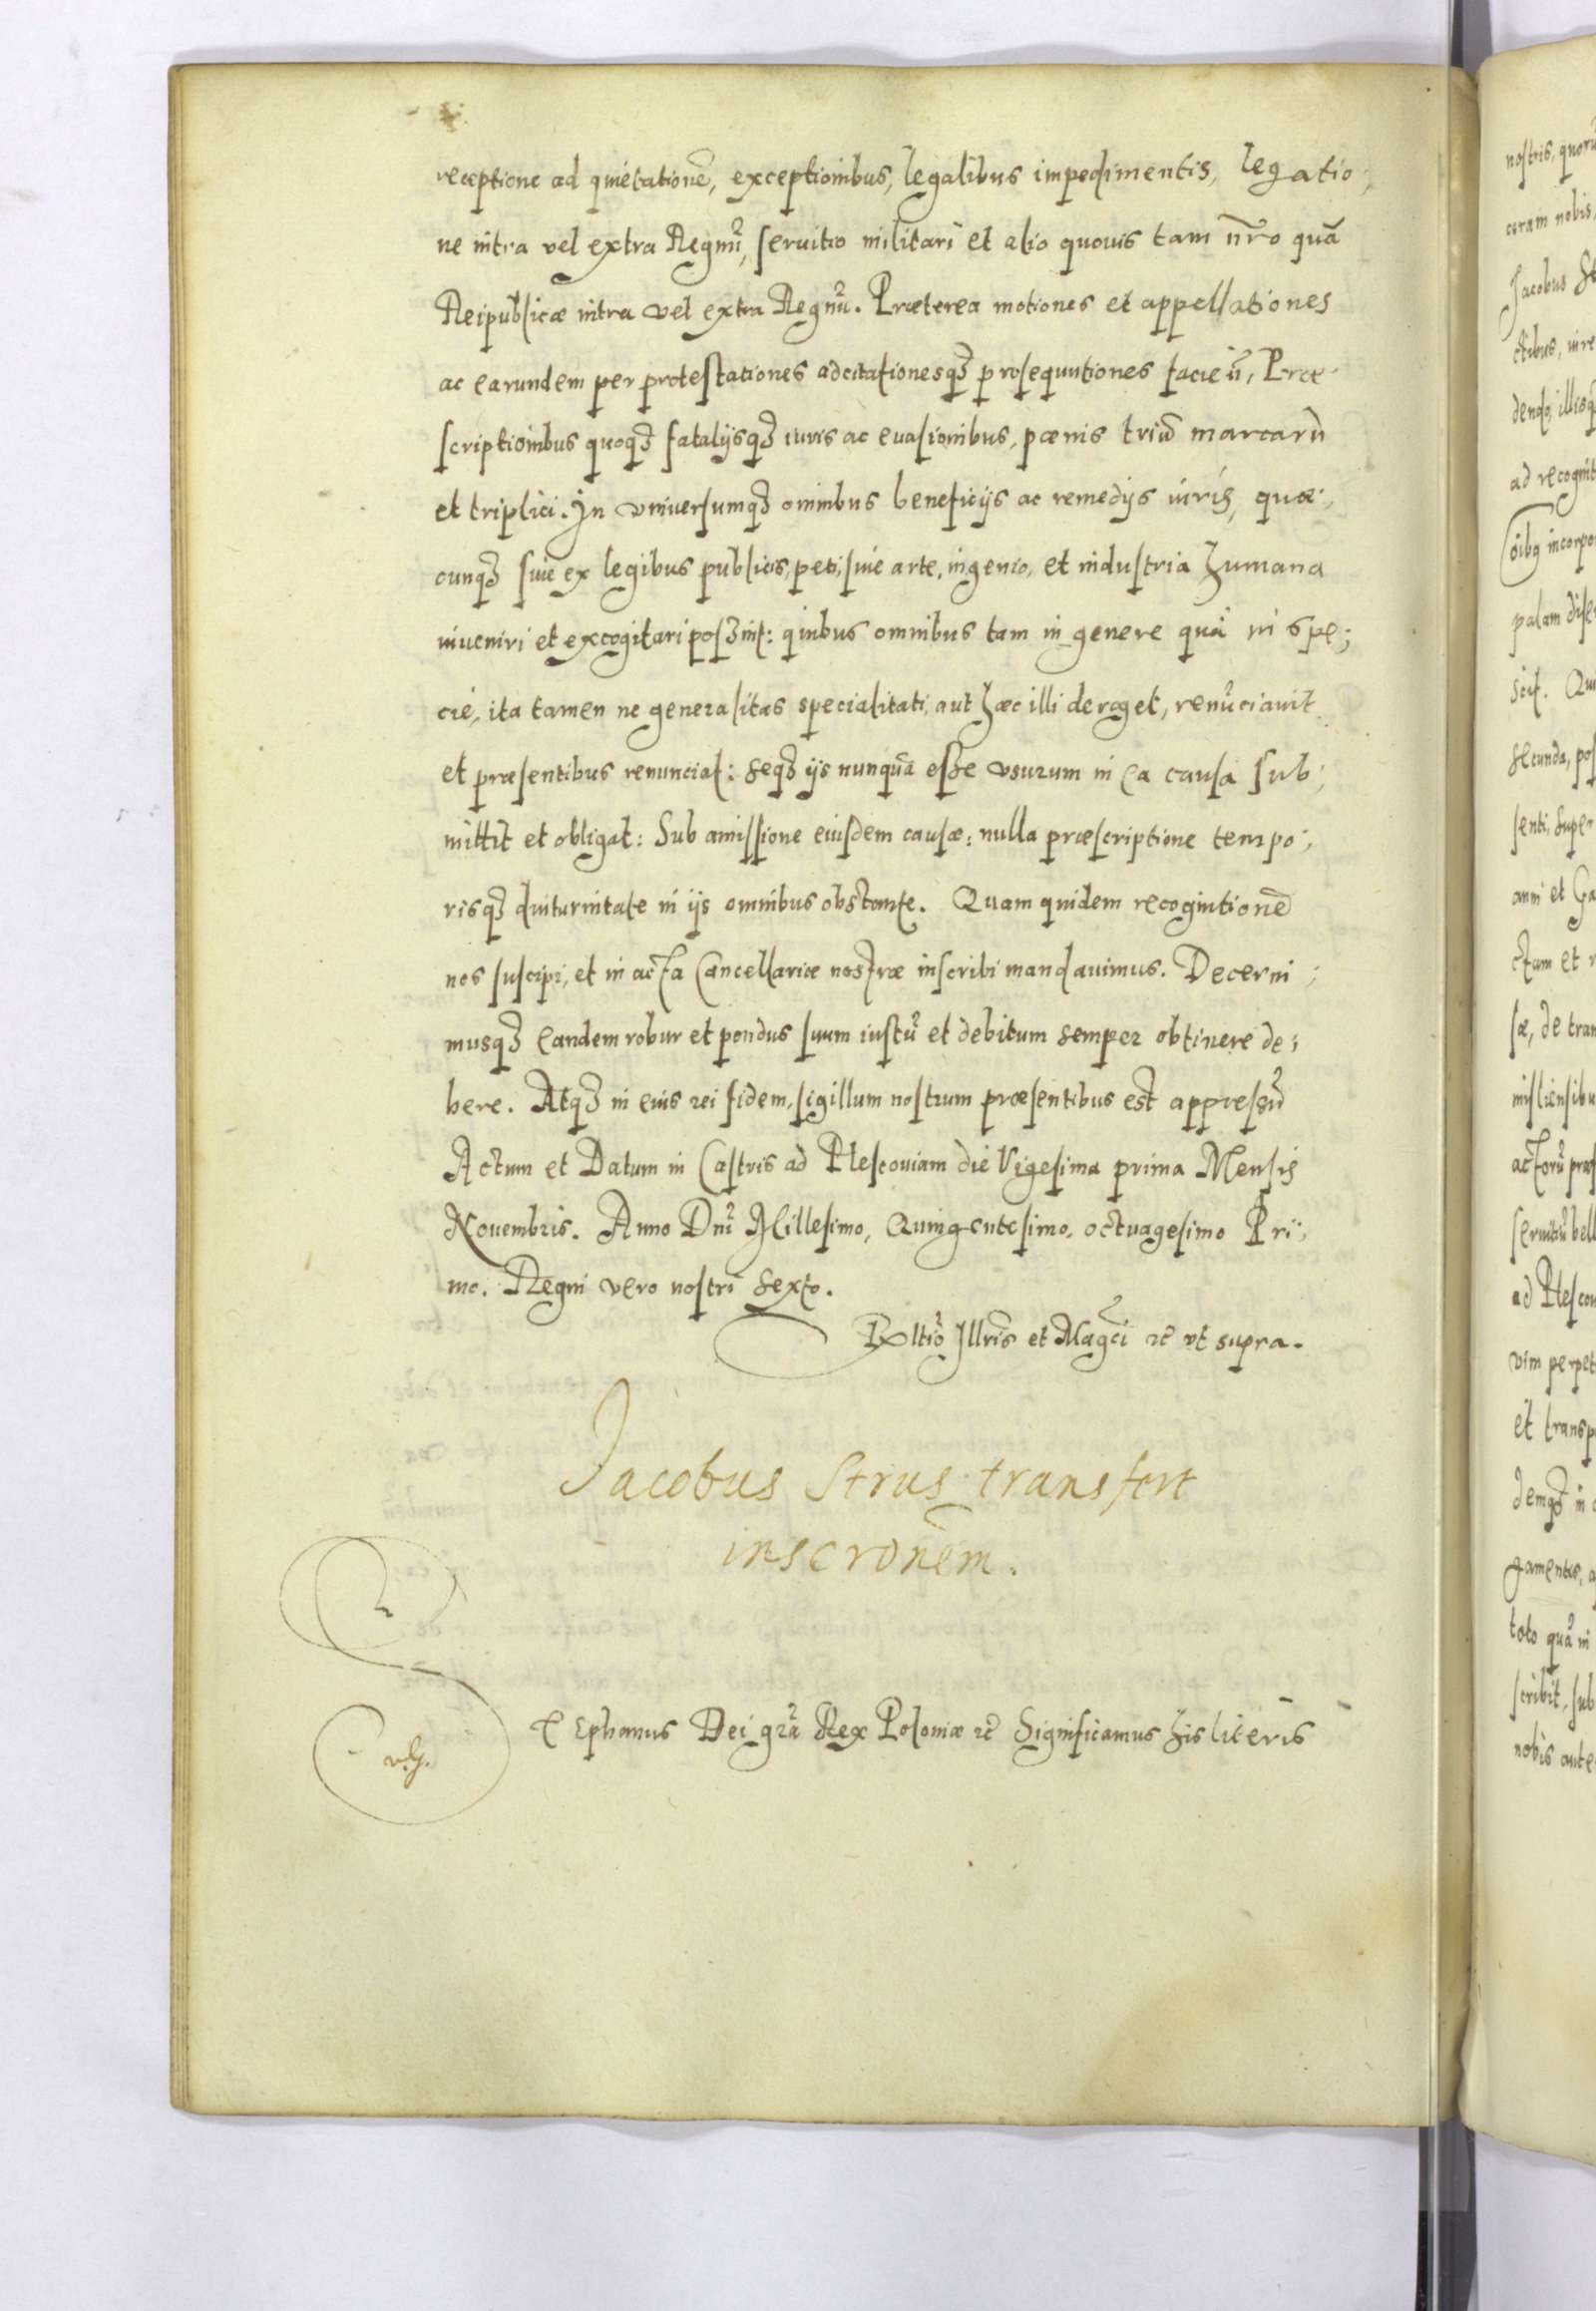 receptione ad quietationē, exceptionibus, legalibus impedimentis, legatio
ne intra vel extra Regnū, seruitio militari et alio quouis tam nr̄o quā
Reipublicæ intra vel extra Regnū. Præterea motiones et appellationes
ac earundem per protestationes adcitationesqȝ prosequutiones facieñ, Præ
scriptionibus quoqȝ fatalijsqȝ iuris ac euasionibus, pœnis triū marcarū
et triplici. In vniuersumqȝ omnibus beneficijs ac remedijs iuris, quæ
cunqȝ siue ex legibus publicis, peti, siue arte, ingenio, et industria humana
inueniri et excogitari possint: quibus omnibus tam in genere quā in spe;
cie, ita tamen ne generalitas specialitati, aut hæc illi deroget, renūciauit
et præsentibus renunciat: seqȝ ijs nunquā esse vsurum in ea causa sub;
mittit et obligat: Sub amissione eiusdem causæ: nulla præscriptione tempo;
risqȝ diuturnitate in ijs omnibus obstante. Quam quidem recognitionē
nos suscipi, et in acta Cancellariæ nostræ inscribi mandauimus. Decerni;
musqȝ eandem robur et pondus suum iustū et debitum semper obtinere de;
bere. Atqȝ in eius rei fidem, sigillum nostrum præsentibus est appressū
Actum et Datum in Castris ad Plescouiam die Vigesima prima Mensis
Nouembris. Anno Dnī Millesimo, Quingentesimo, octuagesimo Pri;
mo. Regni vero nostri sexto.
Rltīo Illris et Magci ꝛc̄ vt supra.
Jacobus Strus transfert
inscronēm.
Stephanus Dei grā Rex Poloniæ ꝛc̄ Significamus his literis